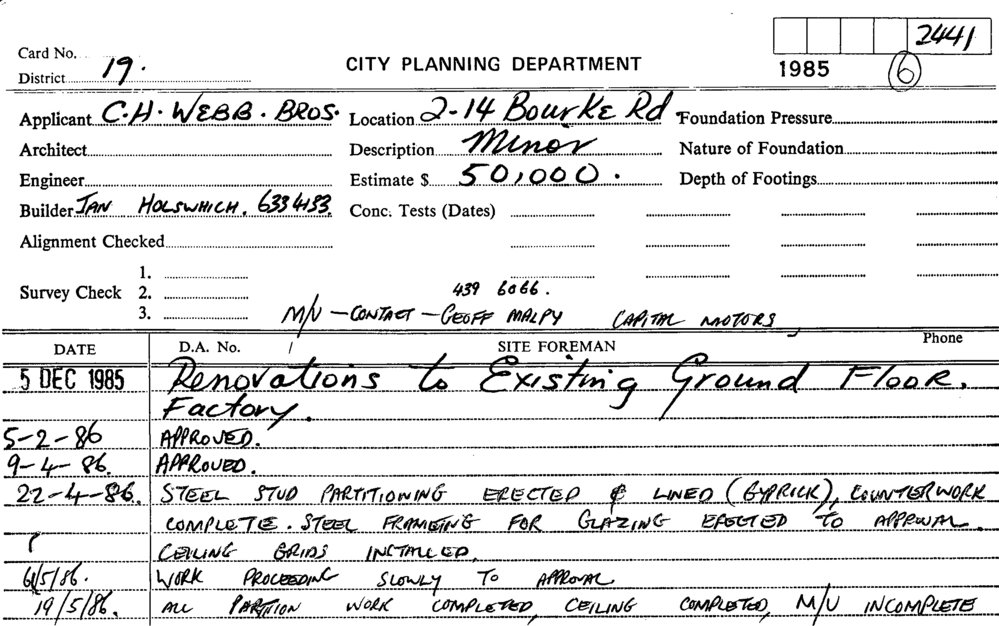 2441
Card No. 19.
District
CITY PLANNING DEPARTMENT
1985 6
Applicant C.H. WEBB. BROS. Location 2-14 Bourke Rd Foundation Pressure
Architect Description Minor Nature of Foundation
Engineer Estimate $ 50,000. Depth of Footings
Builder IAN HOLSWHICH. 633 4133. Conc. Tests (Dates)
Alignment Checked
1.
Survey Check 2. 439 6066.
3. M/U - CONTACT - GEOFF MALPY CAPITAL MOTORS
DATE D.A. No. SITE FOREMAN Phone
5 DEC 1985 Renovations to Existing Ground Floor.
Factory.
5-2-86 APPROVED.
9-4-86. APPROVED.
22-4-86. STEEL STUD PARTITIONING ERECTED & LINED (GYPRICK), COUNTERWORK
COMPLETE. STEEL FRAMEING FOR GLAZING ERECTED TO APPROVAL.
CEILING GRIDS INSTALLED.
6/5/86. WORK PROCEEDING SLOWLY TO APPROVAL
19/5/86. ALL PARTITION WORK COMPLETED, CEILING COMPLETED, M/U INCOMPLETE